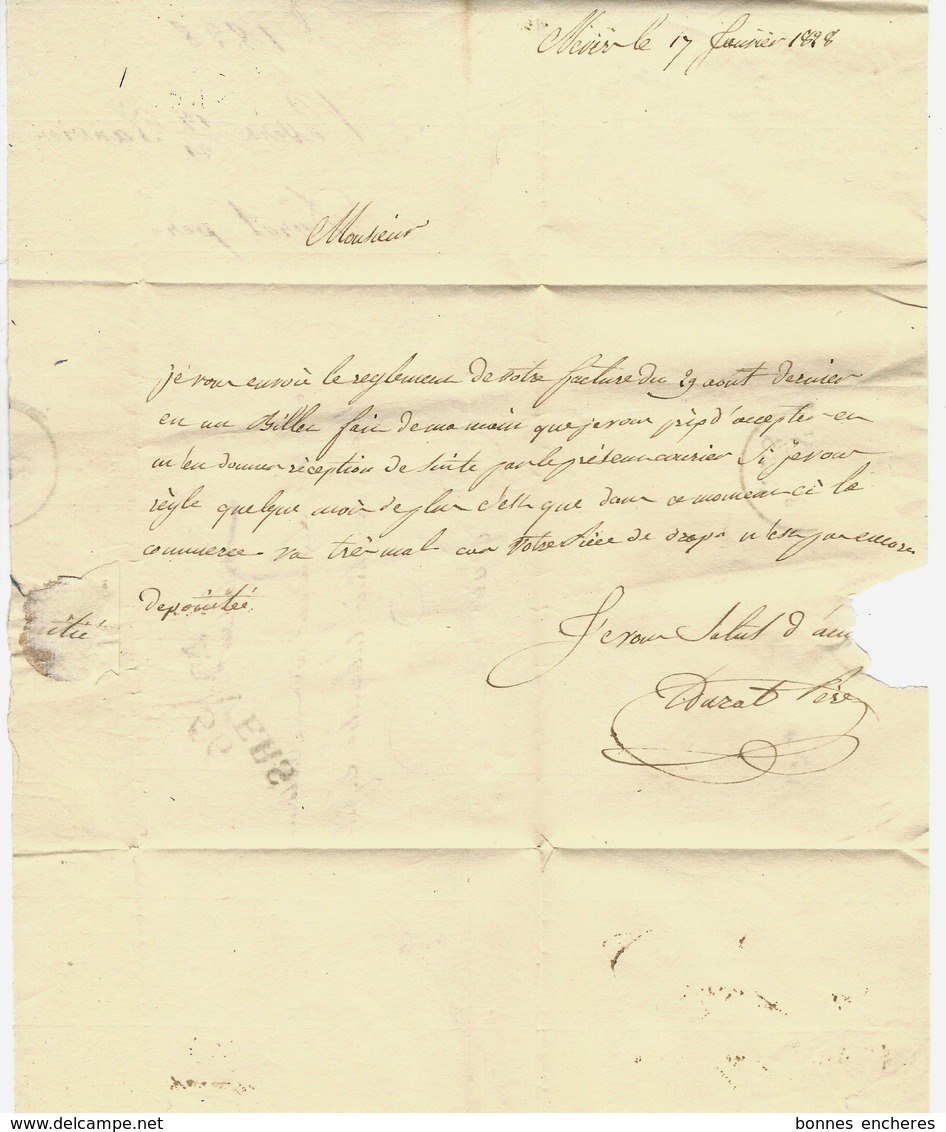 le 17 janvier 1828
Monsieur
je vous envoie le reglement de votre facture du 29 aout dernier
en un Billet fait de ma main que je vous prie d'accepter en
m'en donner réception de suite par le présent courier Si je vous
règle quelque mois de plus c'est que dans ce moment ci le
commerce va très mal car votre Pièce de draps n'est pas encore
Je vous Salut d'am
itié
Durat Père
delcampe.net
bonnes encheres